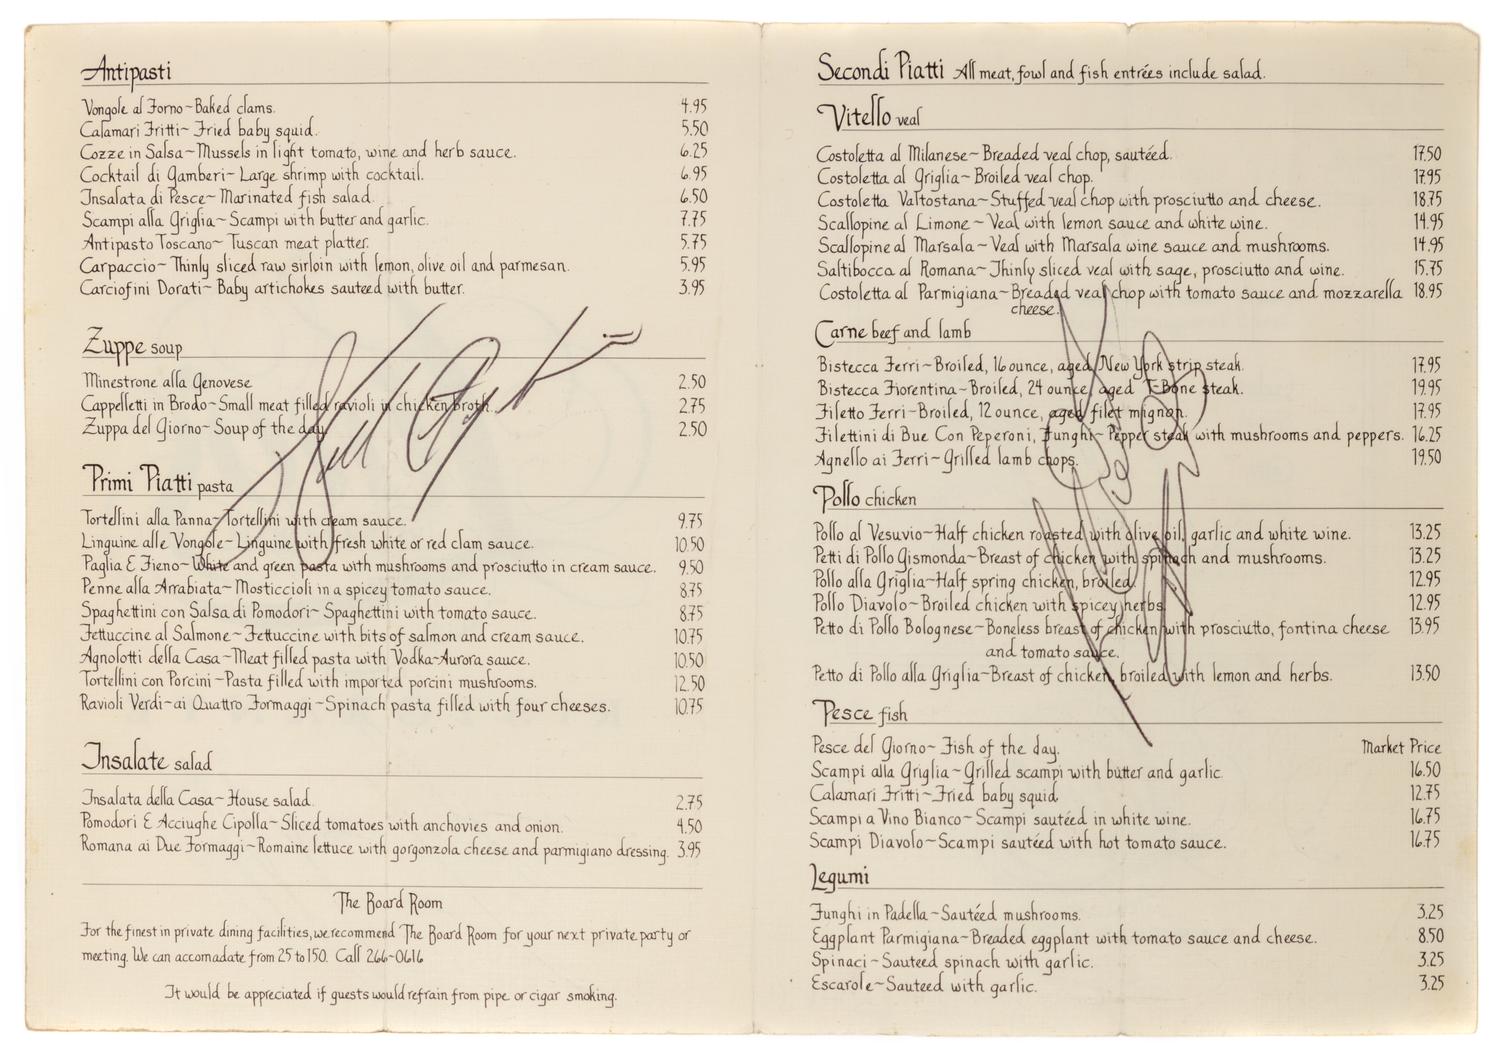 Antipasti
Vongole al Forno~Baked clams. 4.95
Calamari Fritti~ Fried baby squid. 5.50
Cozze in Salsa~Mussels in light tomato, wine and herb sauce. 6.25
Cocktail di Gamberi~Large shrimp with cocktail. 6.95
Insalata di Pesce~ Marinated fish salad. 6.50
Scampi alla Griglia~Scampi with butter and garlic. 7.75
Antipasto Toscano~Tuscan meat platter. 5.75
Carpaccio~Thinly sliced raw sirloin with lemon, olive oil and parmesan. 5.95
Carciofini Dorati~Baby artichokes sauteed with butter. 3.95
Zuppe soup
Minestrone alla Genovese 2.50
Cappelletti in Brodo~Small meat filled ravioli in chicken broth. 2.75
Zuppa del Giorno~Soup of the day 2.50
Primi Piatti pasta
Tortellini alla Panna~Tortellini with cream sauce. 9.75
Linguine alle Vongole~Linguine with fresh white or red clam sauce. 10.50
Paglia E Fieno~White and green pasta with mushrooms and prosciutto in cream sauce. 9.50
Penne alla Arrabiata~Mosticcioli in a spicey tomato sauce. 8.75
Spaghettini con Salsa di Pomodori~Spaghettini with tomato sauce. 8.75
Fettuccine al Salmone~Fettuccine with bits of salmon and cream sauce. 10.75
Agnolotti della Casa~Meat filled pasta with Vodka-Aurora sauce. 10.50
Tortellini con Porcini~Pasta filled with imported porcini mushrooms. 12.50
Ravioli Verdi~ai Quattro Formaggi~Spinach pasta filled with four cheeses. 10.75
Insalate salad
Insalata della Casa~House salad. 2.75
Pomodori E Acciughe Cipolla~Sliced tomatoes with anchovies and onion. 4.50
Romana ai Due Formaggi~Romaine lettuce with gorgonzola cheese and parmigiano dressing. 3.95
The Board Room
For the finest in private dining facilities, we recommend The Board Room for your next private party or
meeting. We can accomadate from 25 to 150. Call 266~0616
It would be appreciated if guests would refrain from pipe or cigar smoking.
Secondi Piatti All meat, fowl and fish entrées include salad.
Vitello veal
Costoletta al Milanese~Breaded veal chop, sautéed. 17.50
Costoletta al Griglia~Broiled veal chop. 17.95
Costoletta Valtostana~Stuffed veal chop with prosciutto and cheese. 18.75
Scallopine al Limone~ Veal with lemon sauce and white wine. 14.95
Scallopine al Marsala~Veal with Marsala wine sauce and mushrooms. 14.95
Saltibocca al Romana~Thinly sliced veal with sage, prosciutto and wine. 15.75
Costoletta al Parmigiana~Breaded veal chop with tomato sauce and mozzarella 18.95
cheese.
Carne beef and lamb
Bistecca Ferri~Broiled, 16 ounce, aged, New York strip steak. 17.95
Bistecca Fiorentina~Broiled, 24 ounce, aged T-Bone steak. 19.95
Filetto Ferri~Broiled, 12 ounce, aged filet mignon. 17.95
Filettini di Bue Con Peperoni, Funghi~ Pepper steak with mushrooms and peppers. 16.25
Agnello ai Ferri~Grilled lamb chops. 19.50
Pollo chicken
Pollo al Vesuvio~Half chicken roasted with olive oil, garlic and white wine. 13.25
Petti di Pollo Gismonda~Breast of chicken with spinach and mushrooms. 13.25
Pollo alla Griglia~Half spring chicken, broiled. 12.95
Pollo Diavolo~Broiled chicken with spicey herbs. 12.95
Petto di Pollo Bolognese~Boneless breast of chicken with prosciutto, fontina cheese 13.95
and tomato sauce.
Petto di Pollo alla Griglia~Breast of chicken, broiled with lemon and herbs. 13.50
Pesce fish
Pesce del Giorno~ Fish of the day. Market Price
Scampi alla Griglia~Grilled scampi with butter and garlic. 16.50
Calamari Fritti~Fried baby squid. 12.75
Scampi a Vino Bianco~Scampi sautéed in white wine. 16.75
Scampi Diavolo~Scampi sautéed with hot tomato sauce. 16.75
Legumi
Funghi in Padella~Sautéed mushrooms. 3.25
Eggplant Parmigiana~Breaded eggplant with tomato sauce and cheese. 8.50
Spinaci~Sauteed spinach with garlic. 3.25
Escarole~Sauteed with garlic. 3.25